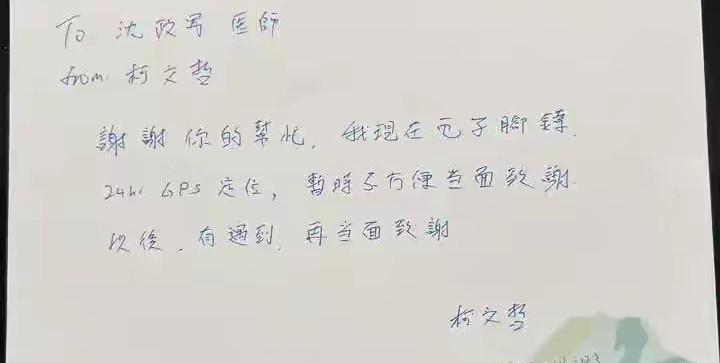 To 沈政男 医師
from 柯文哲
謝謝你的幫忙，我現在电子腳鐐.
24hr GPS 定位，暫時不方便当面致謝.
以後，有遇到，再当面致謝
柯文哲